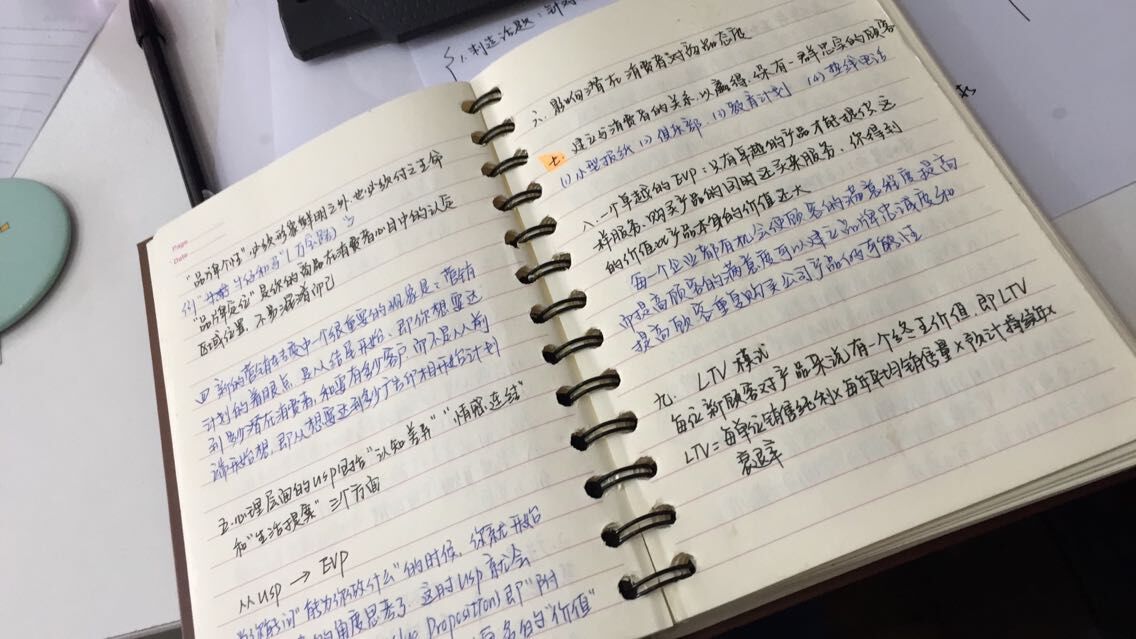 1.制造话题:针对
Page
Date
"品牌个性"必须形象鲜明之外,也必须付之生命
例 牛仔和马(万宝路)
"品牌定位"是你的商品在消费者心目中的认定
区域位置,不易混淆而已
四 新的营销主张中一个很重要的现象是:营销
计划的着眼点,是从结尾开始,即你想要达
到多少潜在消费者,和要有多少客户,而不是从前
端开始想,即从想要达到多少广告印相开始计划
五.心理层面的USP包括"认知差异""情感连结"
和"生活提案"三个方面
从USP → EVP
当你能问"能为你做什么"的时候,你就开始
的角度思考了.这时USP就会
Proposition)即"附
名的"价值"
六.影响潜在消费者对商品态度
七.建立与消费者的关系,以赢得、保有一群忠实的顾客
(1)小型报纸 (2)俱乐部 (3)教育计划 (4)热线电话
八.一个卓越的EVP:只有卓越的产品才能提供这
样服务.购买产品的同时还买来服务,你得到
的价值比产品本身的价值还大
每一个企业都有机会使顾客的满意程度提高
而提高顾客的满意度可以建立品牌忠诚度和
提高顾客重复购买公司产品的可能性
九. LTV模式
每位新顾客对产品来说有一个终生价值,即LTV
LTV=每单位销售纯利×每年平均销售量×预计持续年×
衰退率